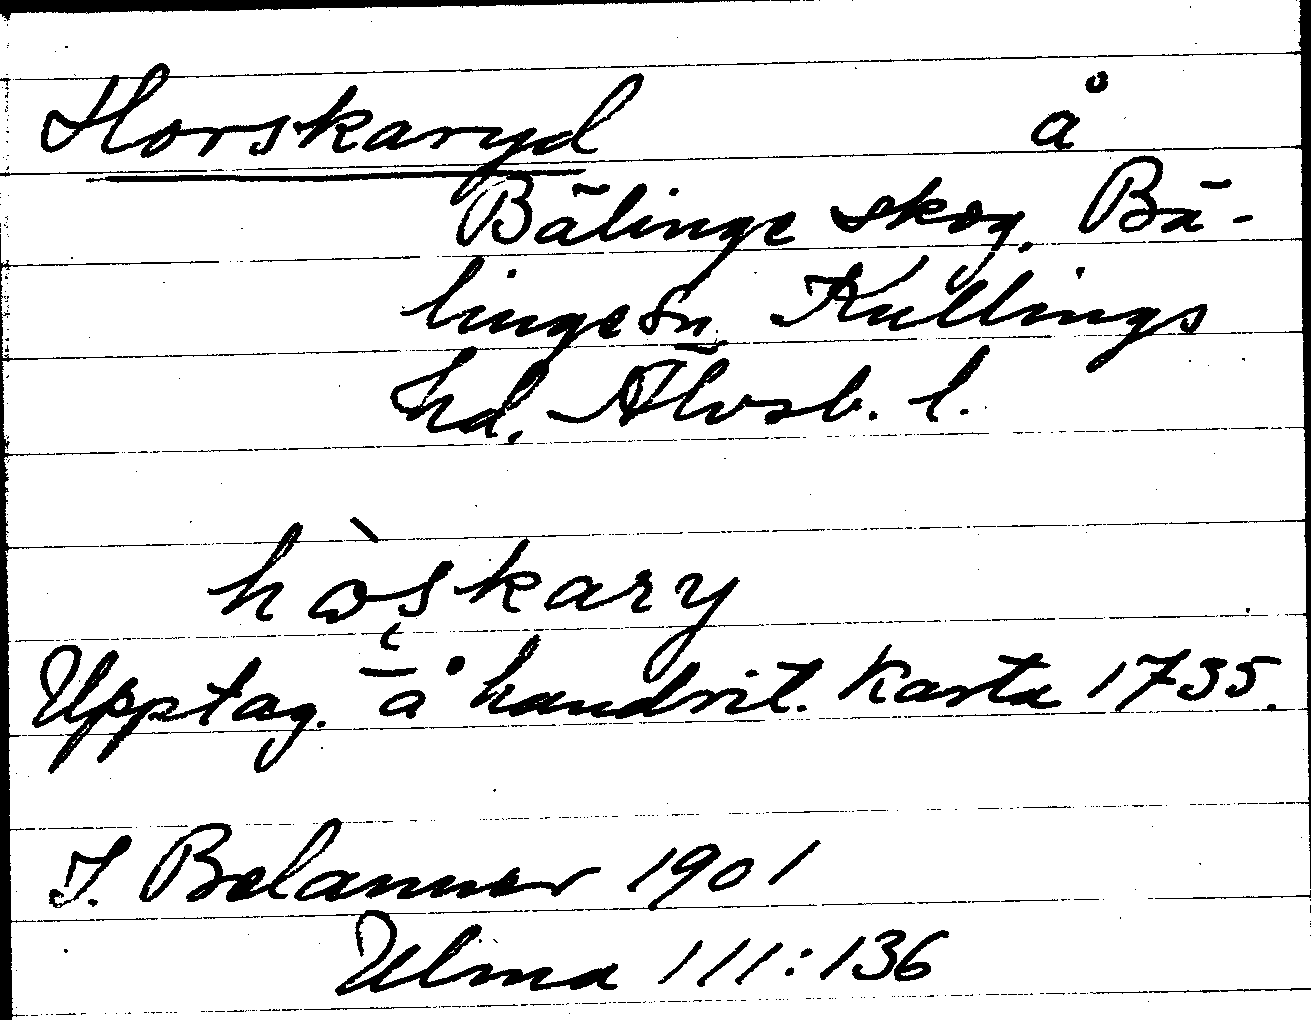 Horskaryd å
Bälinge skog. Bä-
linge sn, Kullings
hd. Älvsb. l.
hòskary
Upptag. å handrit. Karta 1735.
J. Belanner 1901
Ulma 111:136